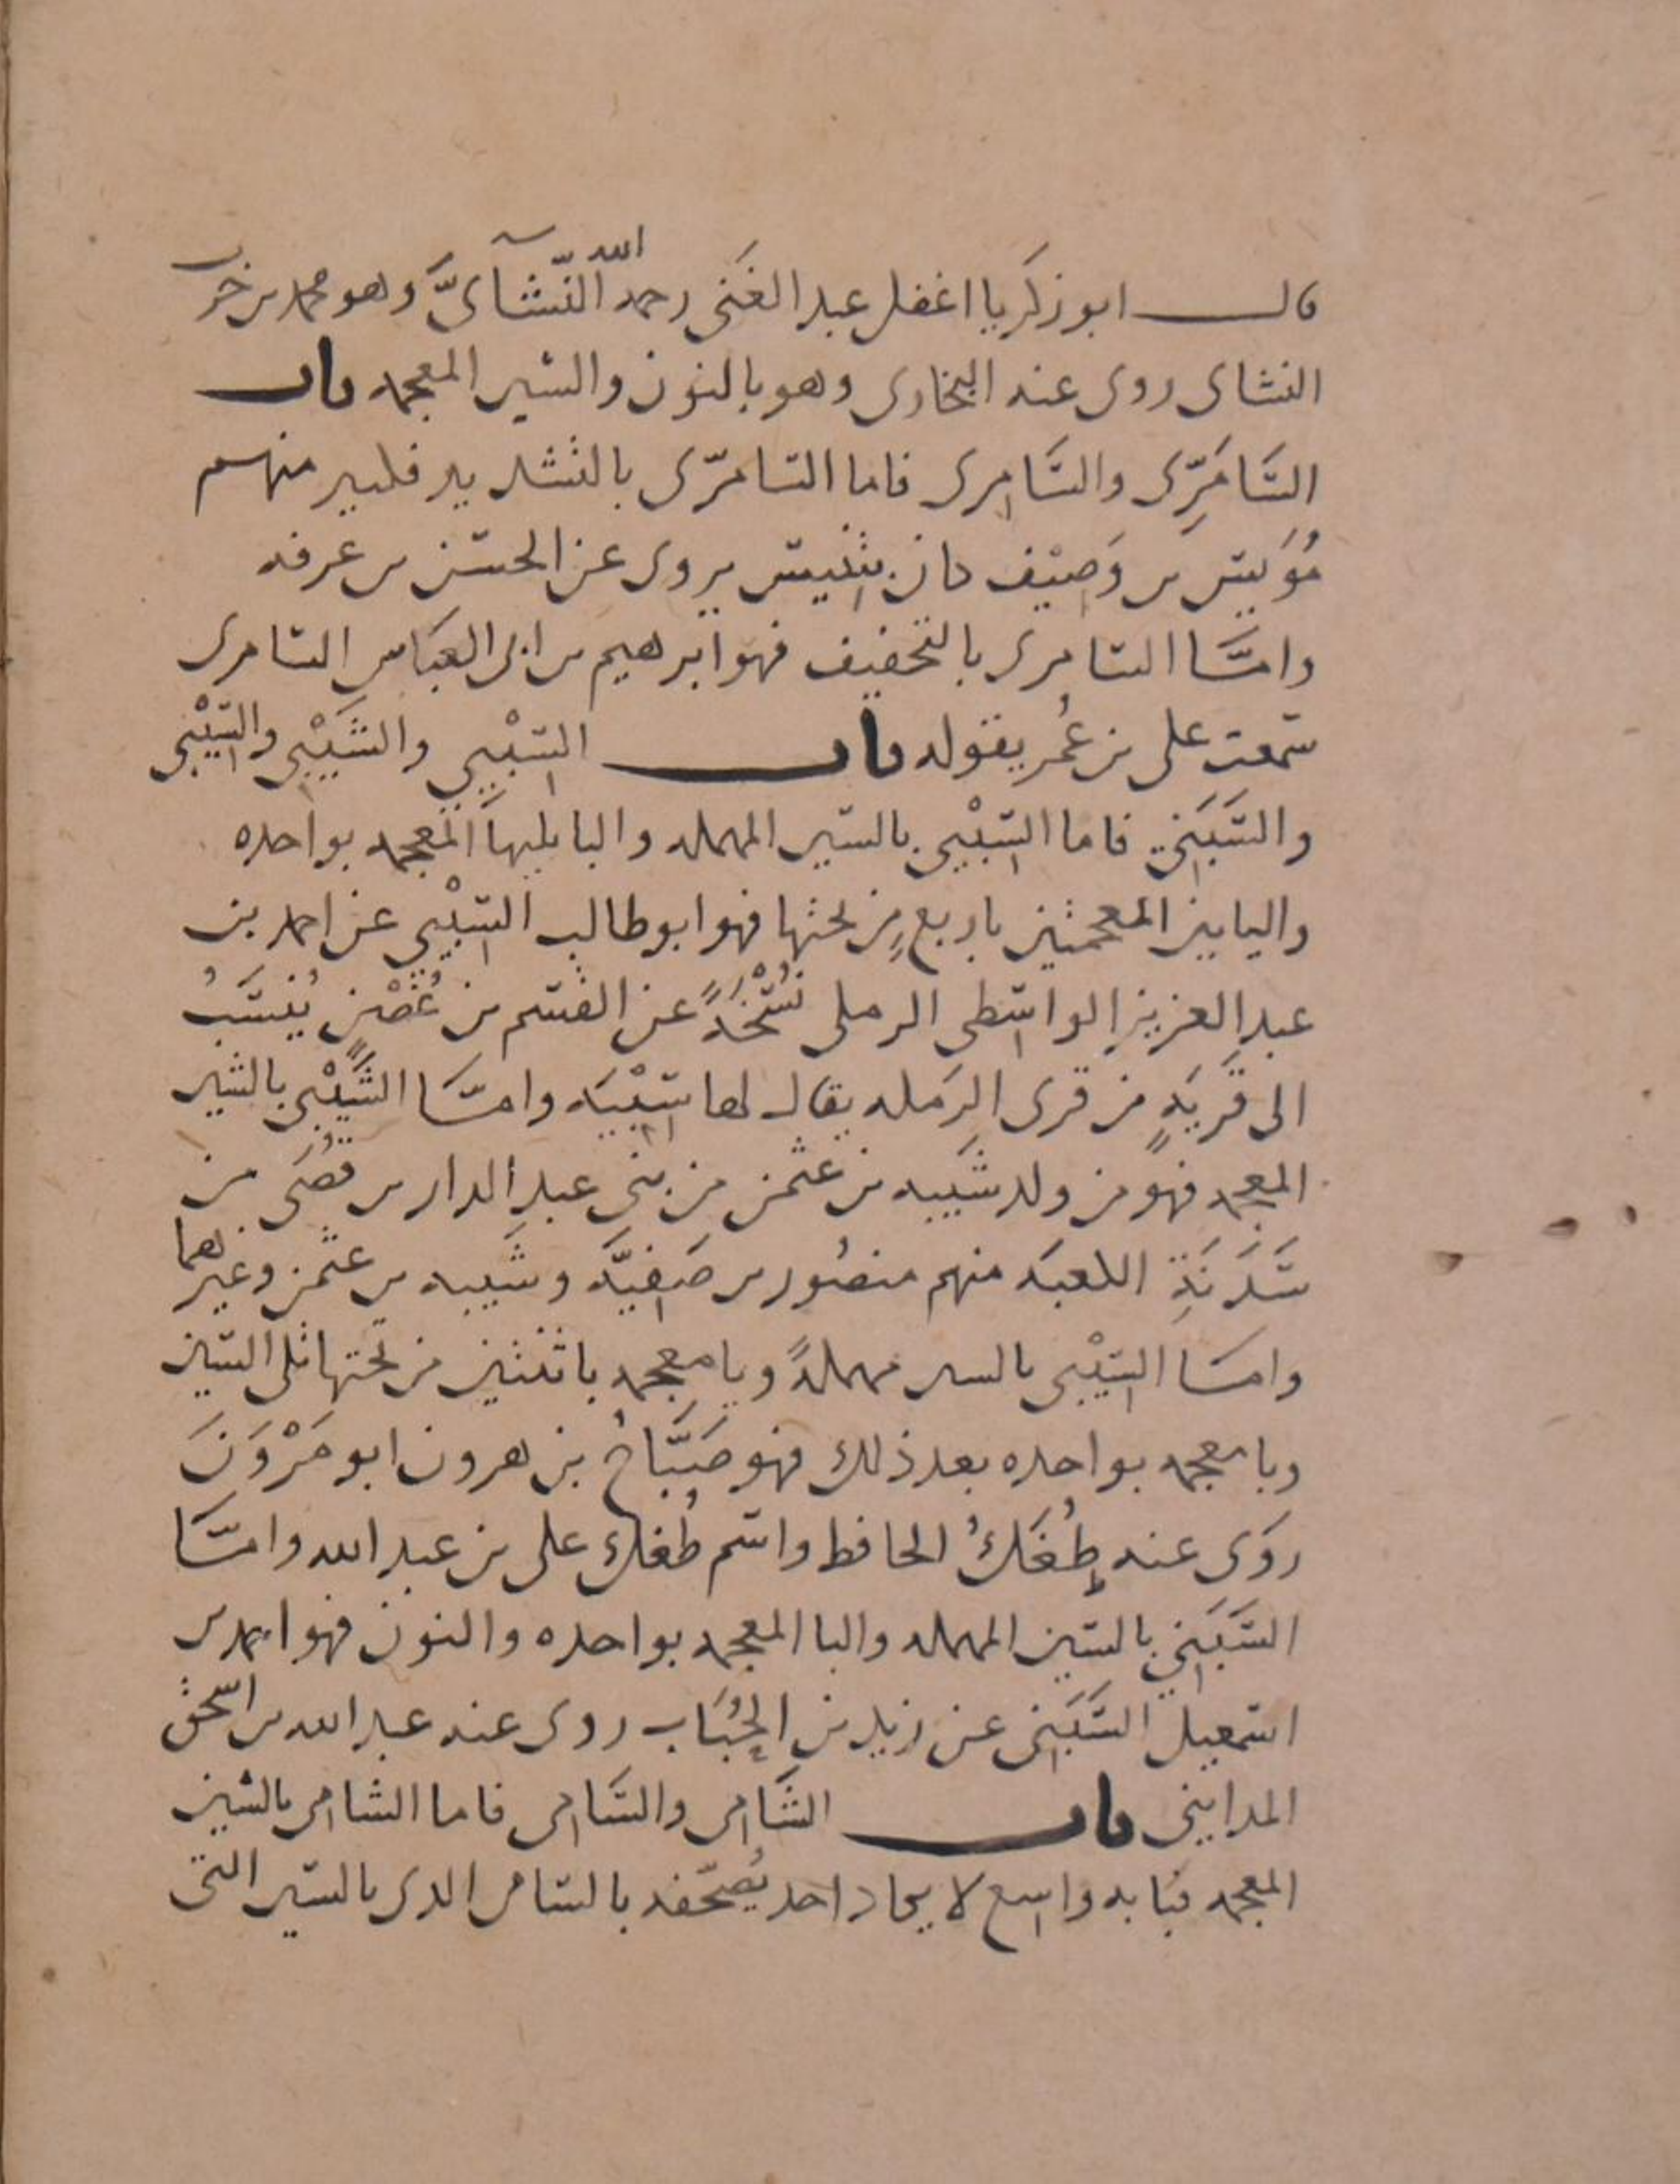 قال ابو زكريا اغفل عبد الغني رحمه الله النَّشآئيَّ وهو محمد بن حرب
النشاي روى عنه البخاري وهو بالنون والشين المعجمه باب
السَّامَرِّي والسَّامِري فاما السامرّي بالتشديد فكثير منهم
مُؤَنِس بن وَصِيْف كان بتنيس يروى عن الحسن بن عرفه
وامَّا السامري بالتخفيف فهو ابرهيم بن ابي العبَاس السامري
سَمعت على بن عُمر يقوله باب السِّبْيي والشَّيْبِي والسِّيْبي
والسَّبَنِي فاما السِّبْيي بالسين المهمله والبا يليها المعجمه بواحده
واليايين المعجمتين باربع مِن تحتها فهو ابو طالب السِّبْيي عن احمد بن
عبد العزيز الواسطي الرملي نُسْخَةً عن القسم بن غُصْن يُنسَبُ
الى قَريَةٍ من قرى الرَمله يقال لها سِبْيَه وامَّا الشَّيْبي بالشين
المعجمه فهو من ولد شَيبه بن عثمن من بني عبد الدار بن قصَي من
سَدَنَةِ الكعبَه منهم منصُور بن صَفِيَّه وشَيبه بن عثمن وغيرهما
وامَّا السِّيْبي بالسين مهملةً ويا معجمه باثنتين من تحتها تلى السّين
وبا معجمه بواحده بعد ذلك فهو صَبَّاحُ بن هرون ابو مَرْوَنَ
روَى عنه طُغَكُ الحافظ واسم طُغك على بن عبد الله وامَّا
السَّبَنِي بالسّين المهمله والبا المعجمه بواحده والنون فهو احمد بن
اسمعيل السَّبَنِي عن زيد بن الحُبَاب روى عنه عبد الله بن اسحق
المدايني باب الشَّامِي والسَّامِي فاما الشامي بالشين
المعجمه فبابه واسع لا يكاد احد يُصَحّفه بالسامي الذي بالسّين التي